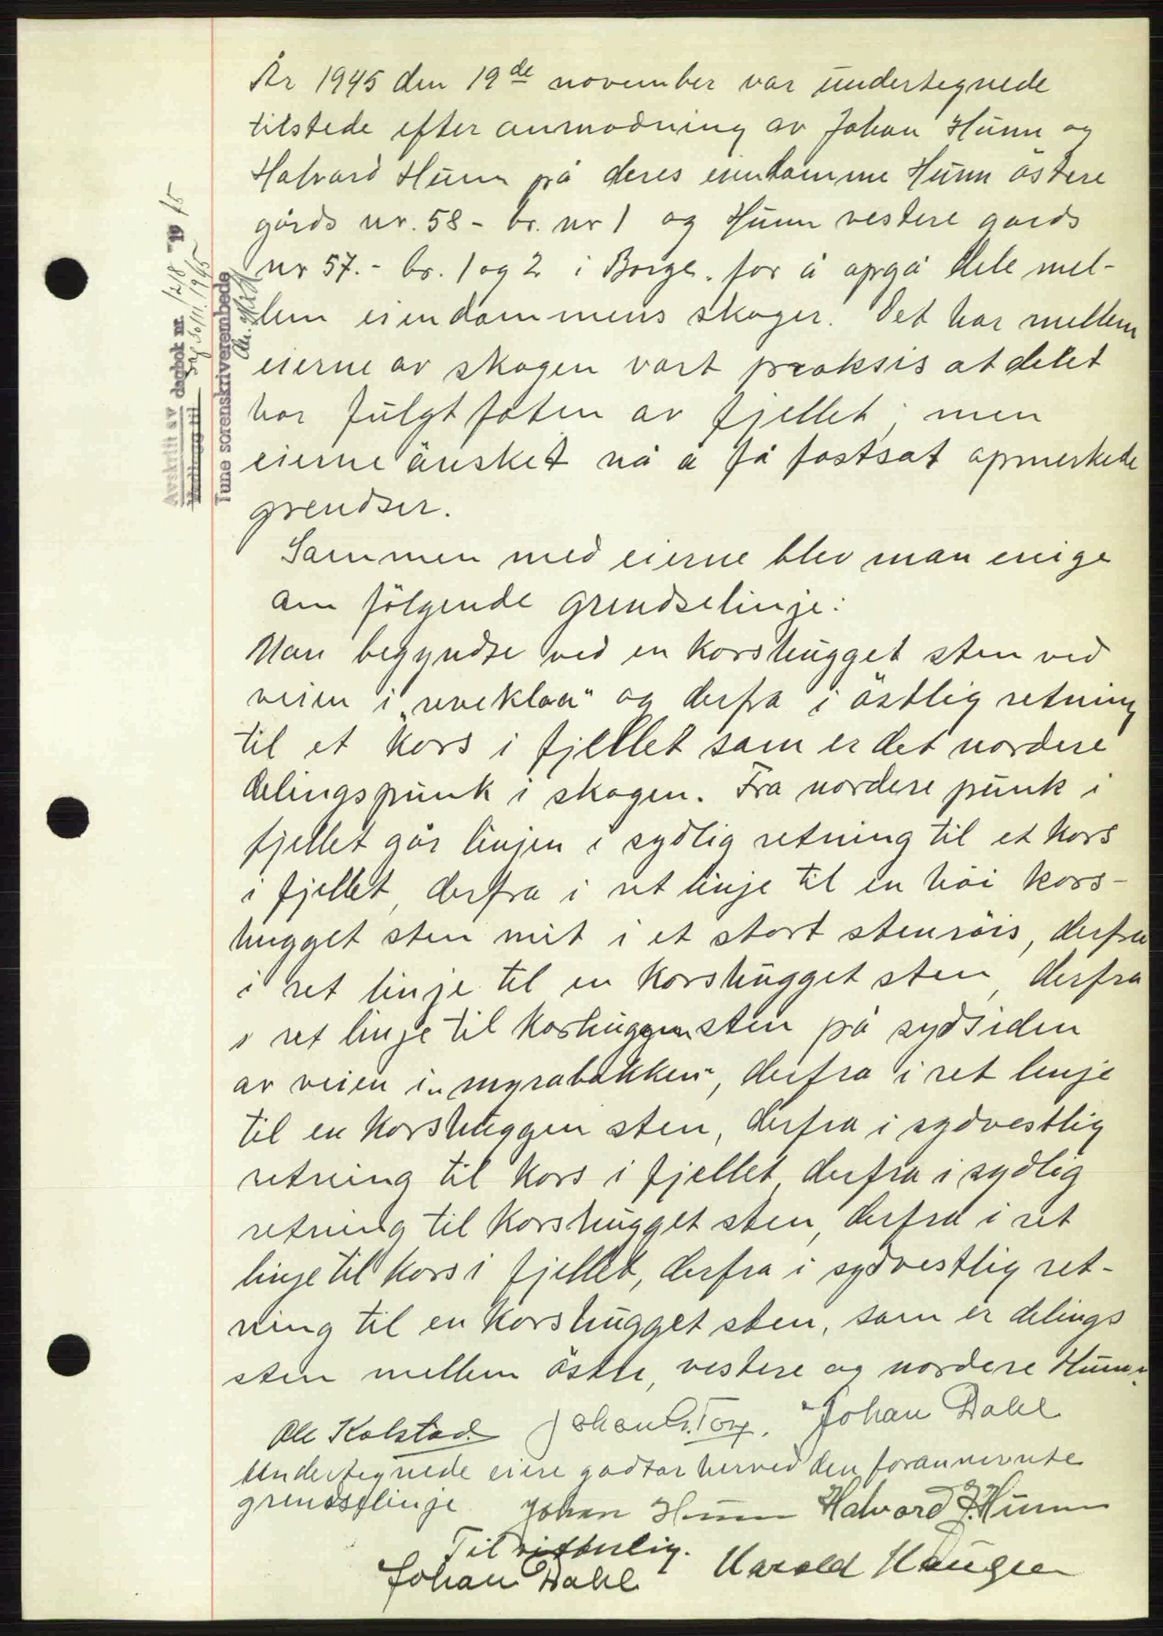 År 1945 den 19de november var undertegnede
tilstede efter anmodning av Johan Hunn og
Halvard Hunn på deres eiendomme Hunn östere
gårds nr. 58 - br. nr 1 og Hunn vestere gards
nr 57. - br. 1 og 2 i Borge. for å opgå dele mel-
lem eiendommens skoger. Det har mellem
eierne av skogen vært praksis at delet
har fulgt foten av fjellet; men
eierne önsket nå å få fastsat opmerkede
grendser.
Sammen med eierne blev man enige
om fölgende grendselinje:
Man begyndte ved en korshugget sten ved
veien i „reveklaa" og derfra i östlig retning
til et kors i fjellet som er det nordere
delingspunk i skogen. Fra nordere punk i
fjellet går linjen i sydlig retning til et kors
i fjellet, derfra i ret linje til en höi kors-
hugget sten mit i et stort stenröis, derfra
i ret linje til en korshugget sten, derfra
i ret linje til korshuggen sten på sydsiden
av veien i „myrabakken", derfra i ret linje
til en korshuggen sten, derfra i sydvestlig
retning til kors i fjellet, derfra i sydlig
retning til korshugget sten, derfra i ret
linje til kors i fjellet, derfra i sydvestlig ret-
ning til en korshugget sten, som er delings
sten mellem östre, vestere og nordere Hunn.
Ole Kolstad. Johan G. Torp. Johan Dahl
Undertegnede eiere godtar herved den forannevnte
grendselinje Johan Hunn Halvard J. Hunn
Til vitterlig.
Johan Dahl Harald Haugen
Avskrift av dagbok nr. 1218 1945
Vedlegg til dag 30/11. 1945
Tune sorenskriverembede